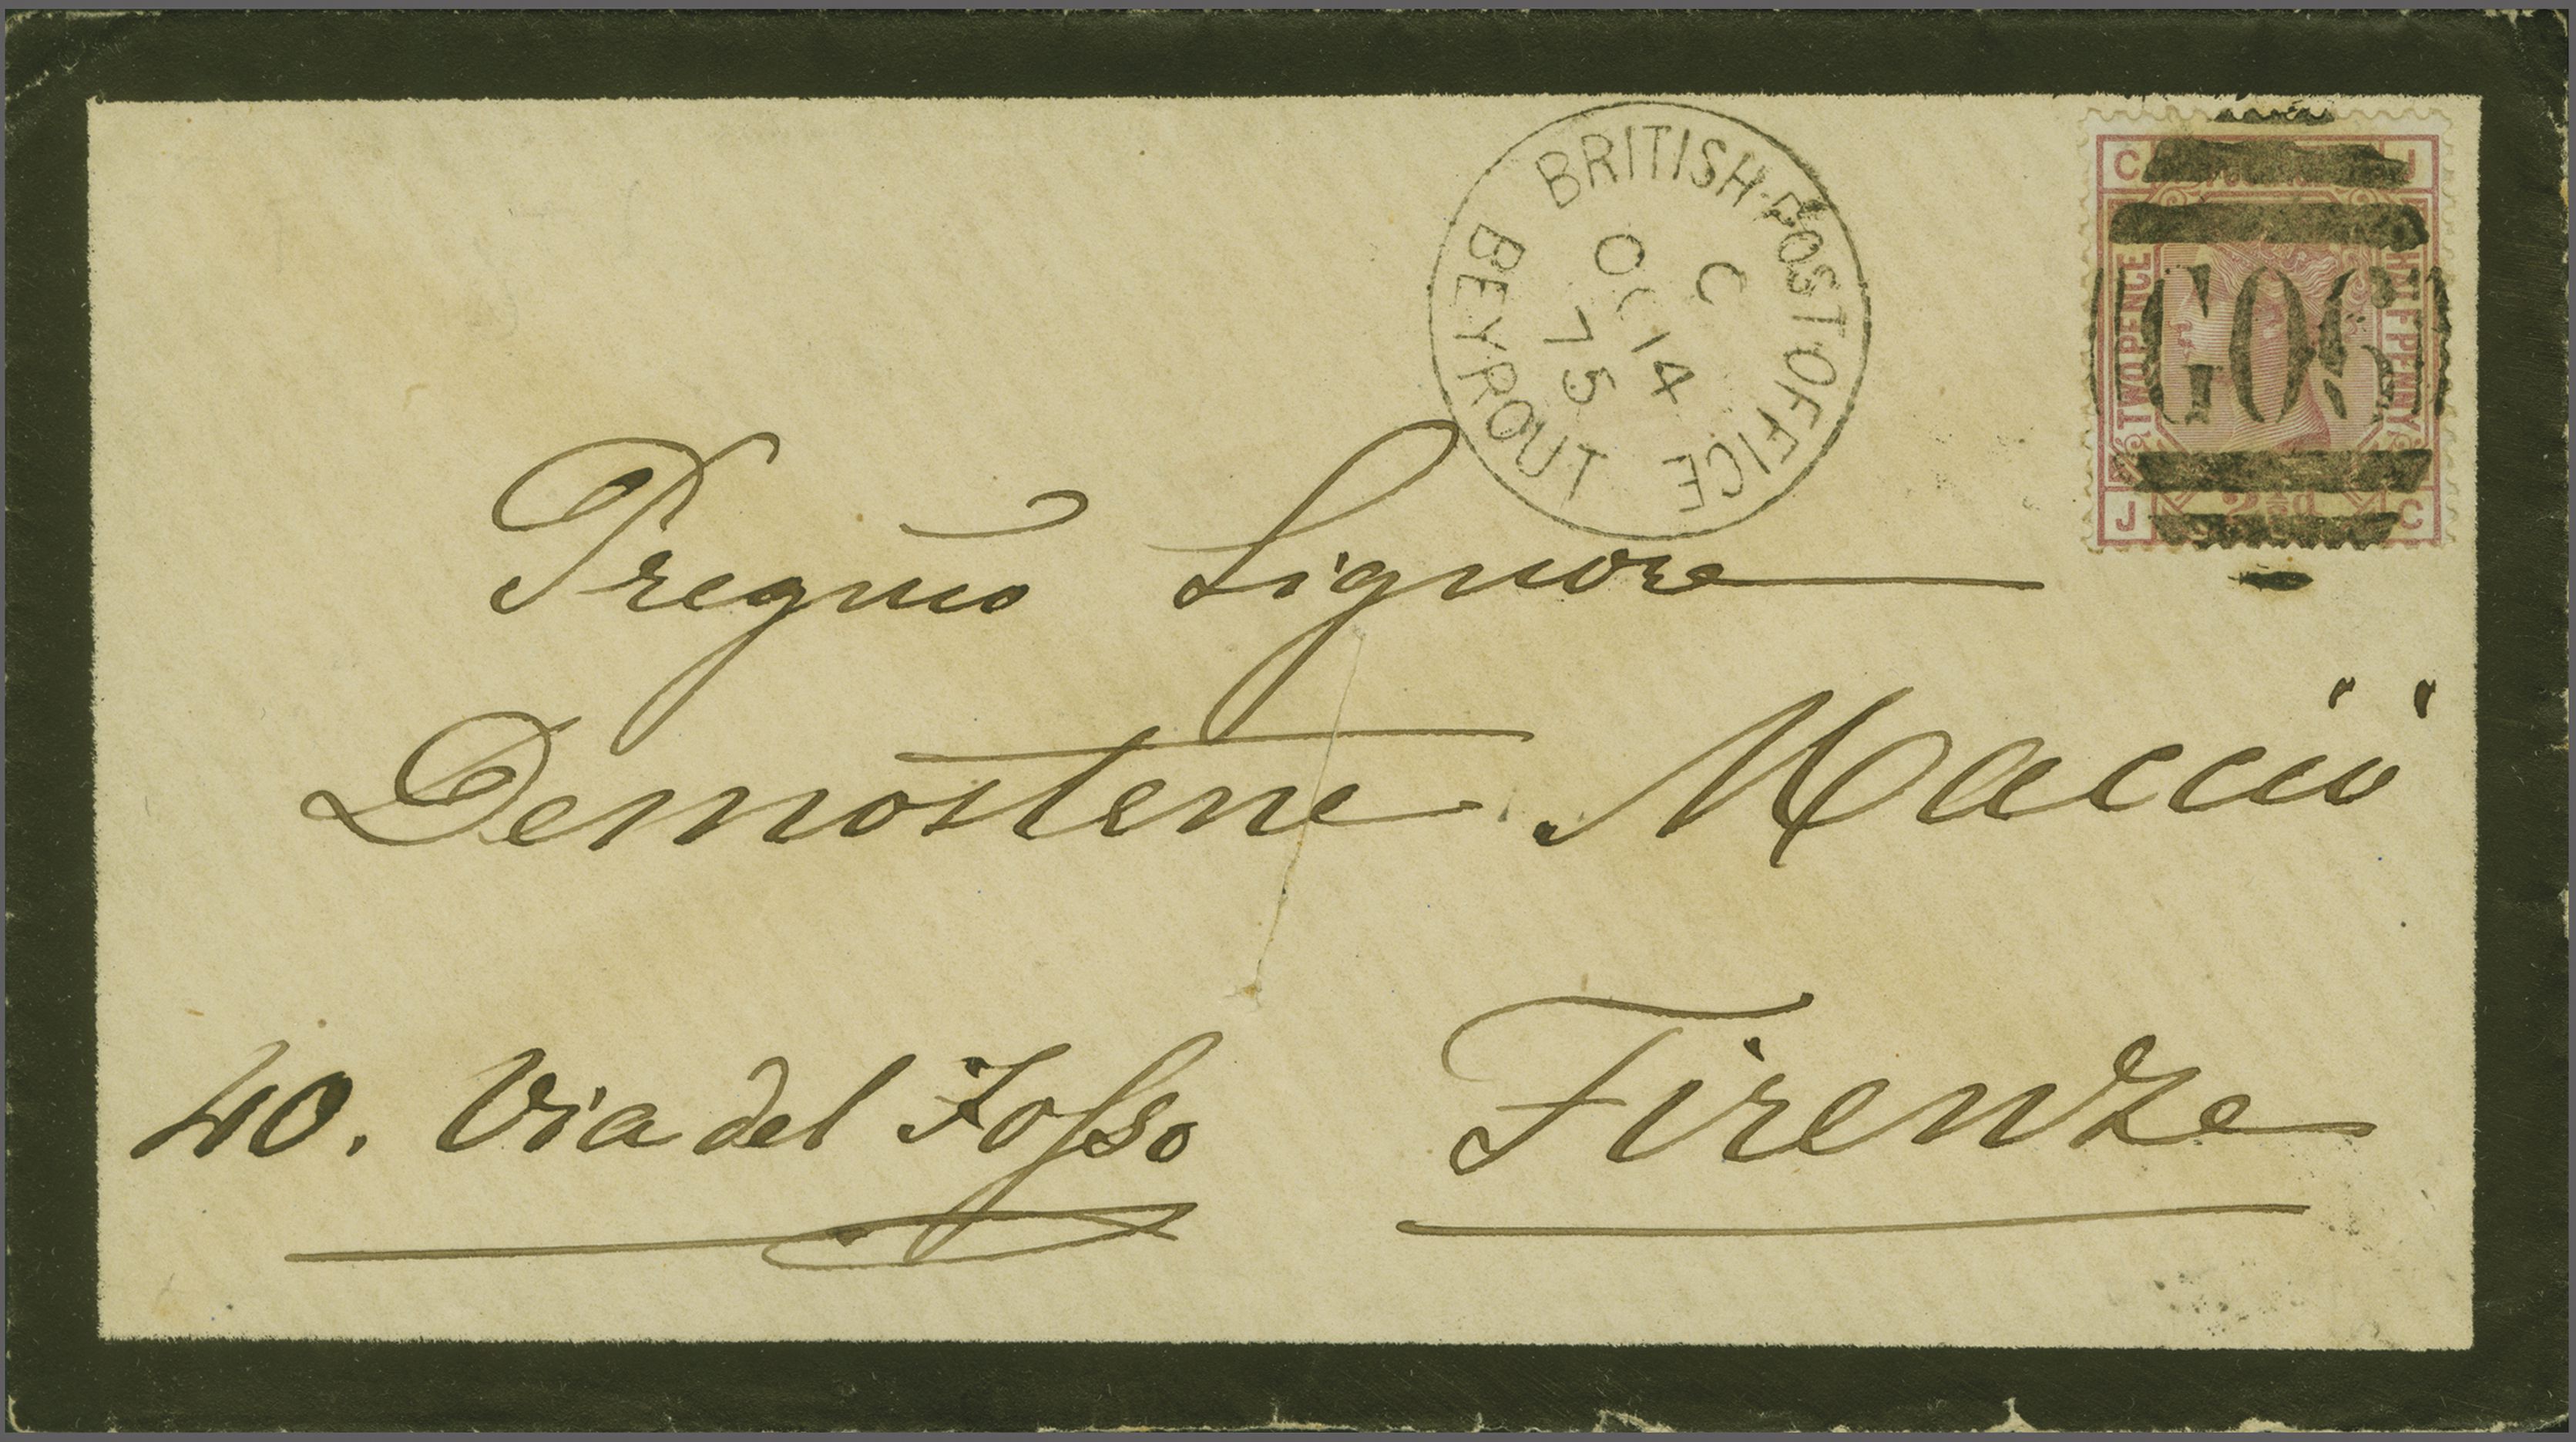 BRITISH·POST·OFFICE
BEYROUT
C
OC 14
75
C J
TWO PENCE
HALFPENNY
G06
J 2½d C
Pregmo Signore
Demostene Macciò
40. Via del Fosso Firenze